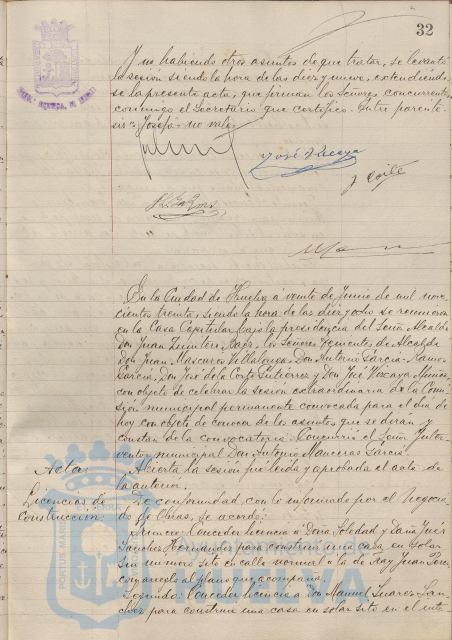 32
Y no habiendo otros asuntos de que tratar, se levantó
la sesión siendo la hora de las diez y nueve, extendiéndo-
se la presente acta, que firman los Señores concurrentes
conmigo el Secretario que certifico. Entre parente-
sis = Josefa = no vale
José Vizcaya
J. Corte
En la Ciudad de Huelva á veinte de Junio de mil nove-
cientos treinta, siendo la hora de las diez y ocho se reunieron
en la Casa Capitular bajo la presidencia del Señor Alcalde
Don Juan Quintero Baez, los Señores Tenientes de Alcalde
Don Juan Mascaros Villalonga, Don Antonio García-Ramos
García, Don José de la Corte Gutiérrez y Don José Vizcaya Muñoz
con objeto de celebrar la sesión extraordinaria de la Comi-
sión municipal permanente convocada para el día de
hoy con objeto de conocer de los asuntos que se dirán y
constan de la convocatoria. Concurrió el Señor Inter-
ventor municipal Don Antonio Manceras García
Actas
Abierta la sesión fué leida y aprobada el acta de
la anterior.
Licencias de
Construcción
De conformidad con lo informado por el Negocia-
do de Obras, se acordó:
Primero: Conceder licencia á Doña Soledad y Doña
Hernandez para construir una casa en solar
sin número sito en calle normal a la de Fray Juan
con arreglo al plano que acompaña.
Segundo: Conceder licencia a Don Manuel Suarez San-
chez para construir una casa en solar sito en el inte-